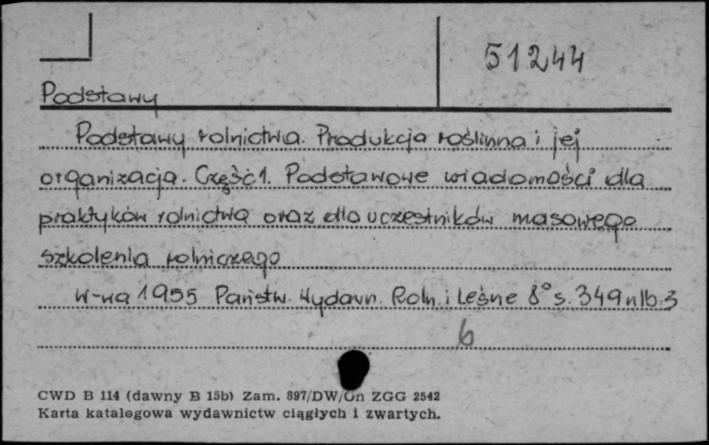 51244
Podstawy
Podstawy rolnictwa. Produkcja roślinna i jej
organizacja. Część 1. Podstawowe wiadomości dla
praktyków rolnictwa oraz dla uczestników masowego
szkolenia rolniczego
W-wa 1955 Państw. Wydawn. Roln. i Leśne 8° s. 349 nlb. 3
6
CWD B 114 (dawny B 15b) Zam. 897/DW/On ZGG 2542
Karta katalogowa wydawnictw ciągłych i zwartych.